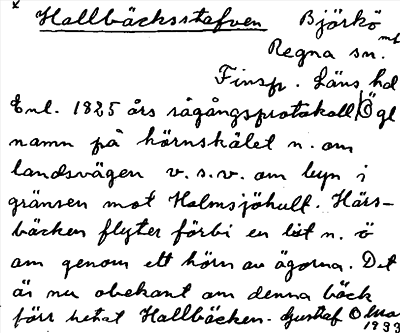 x Hallbäcksstafven Björkö
Regna sn. mt
Finsp. Läns hd
Enl. 1825 års rågångsprotokall, Ögl
namn på hörnskälet n. om
landsvägen v. s. v. om byn i
gränsen mot Holmsjöhult. Hårs-
bäcken flyter förbi en bit n. ö
om genom ett hörn av ägorna. Det
är nu obekant om denna bäck
förr hetat Hallbäcken. Gustaf
1933